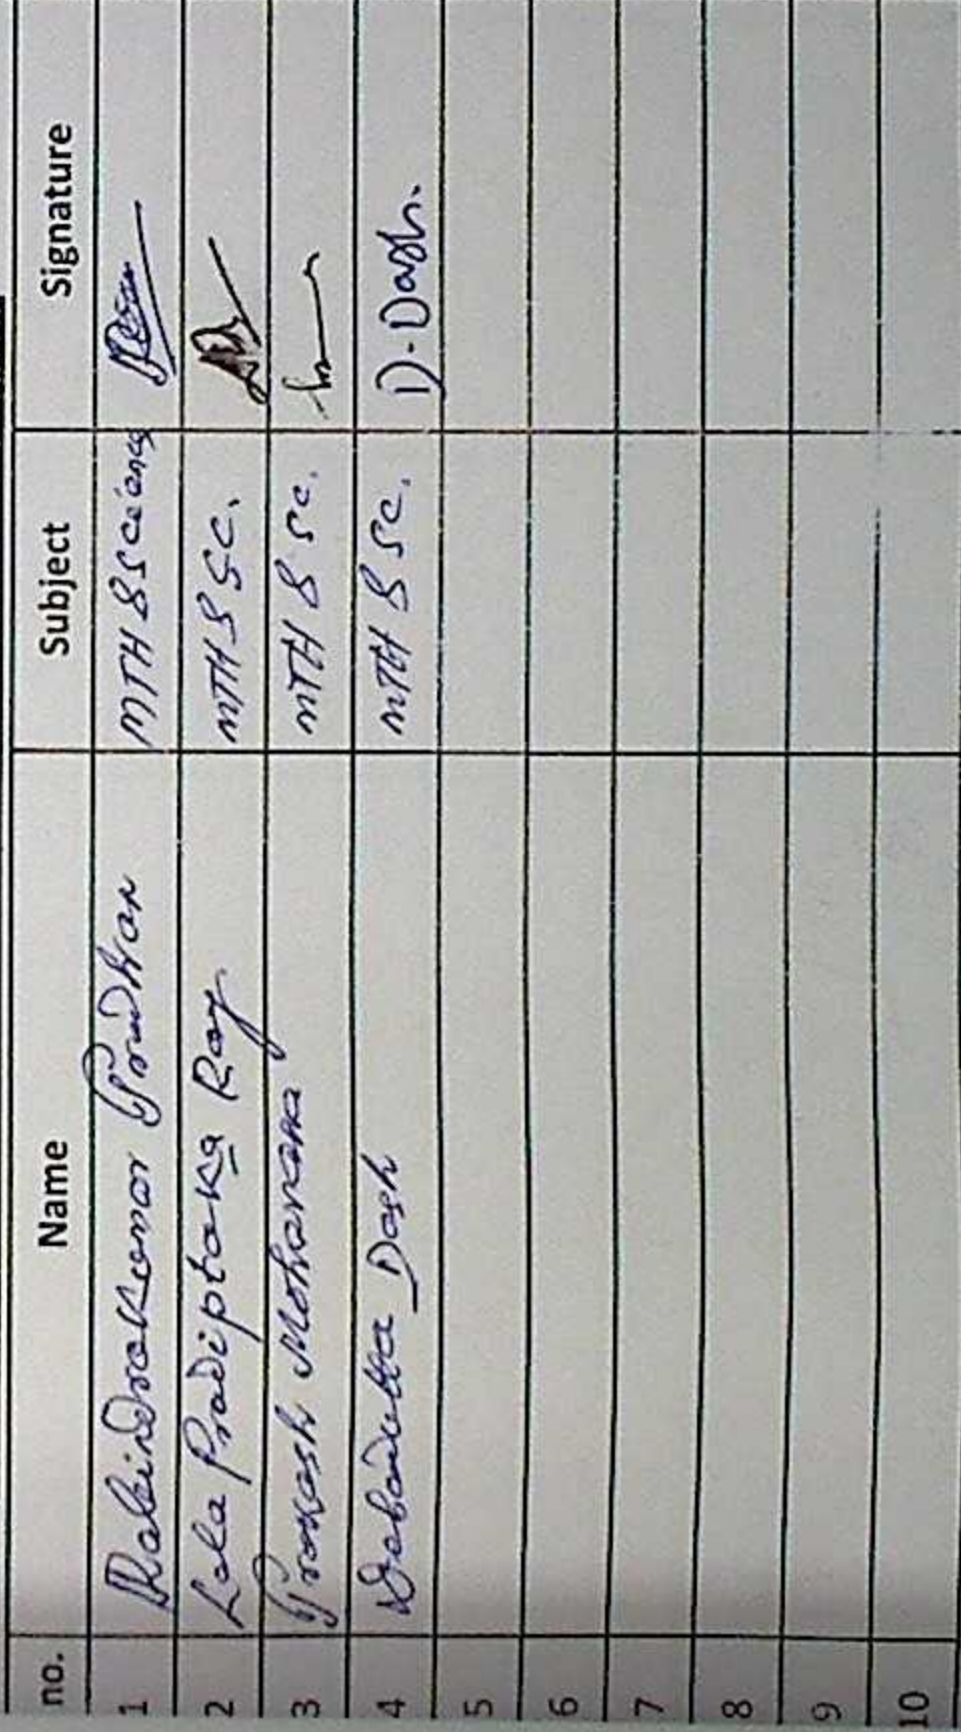 no. Name Subject Signature
1 Rabindra Kumar Pradhan MTH & Science
2 Lala Pradipta Ka Ray MTH & SC.
3 Prakash Moharana MTH & sc.
4 Debadutta Dash MTH & sc. D. Dash.
5
6
7
8
9
10